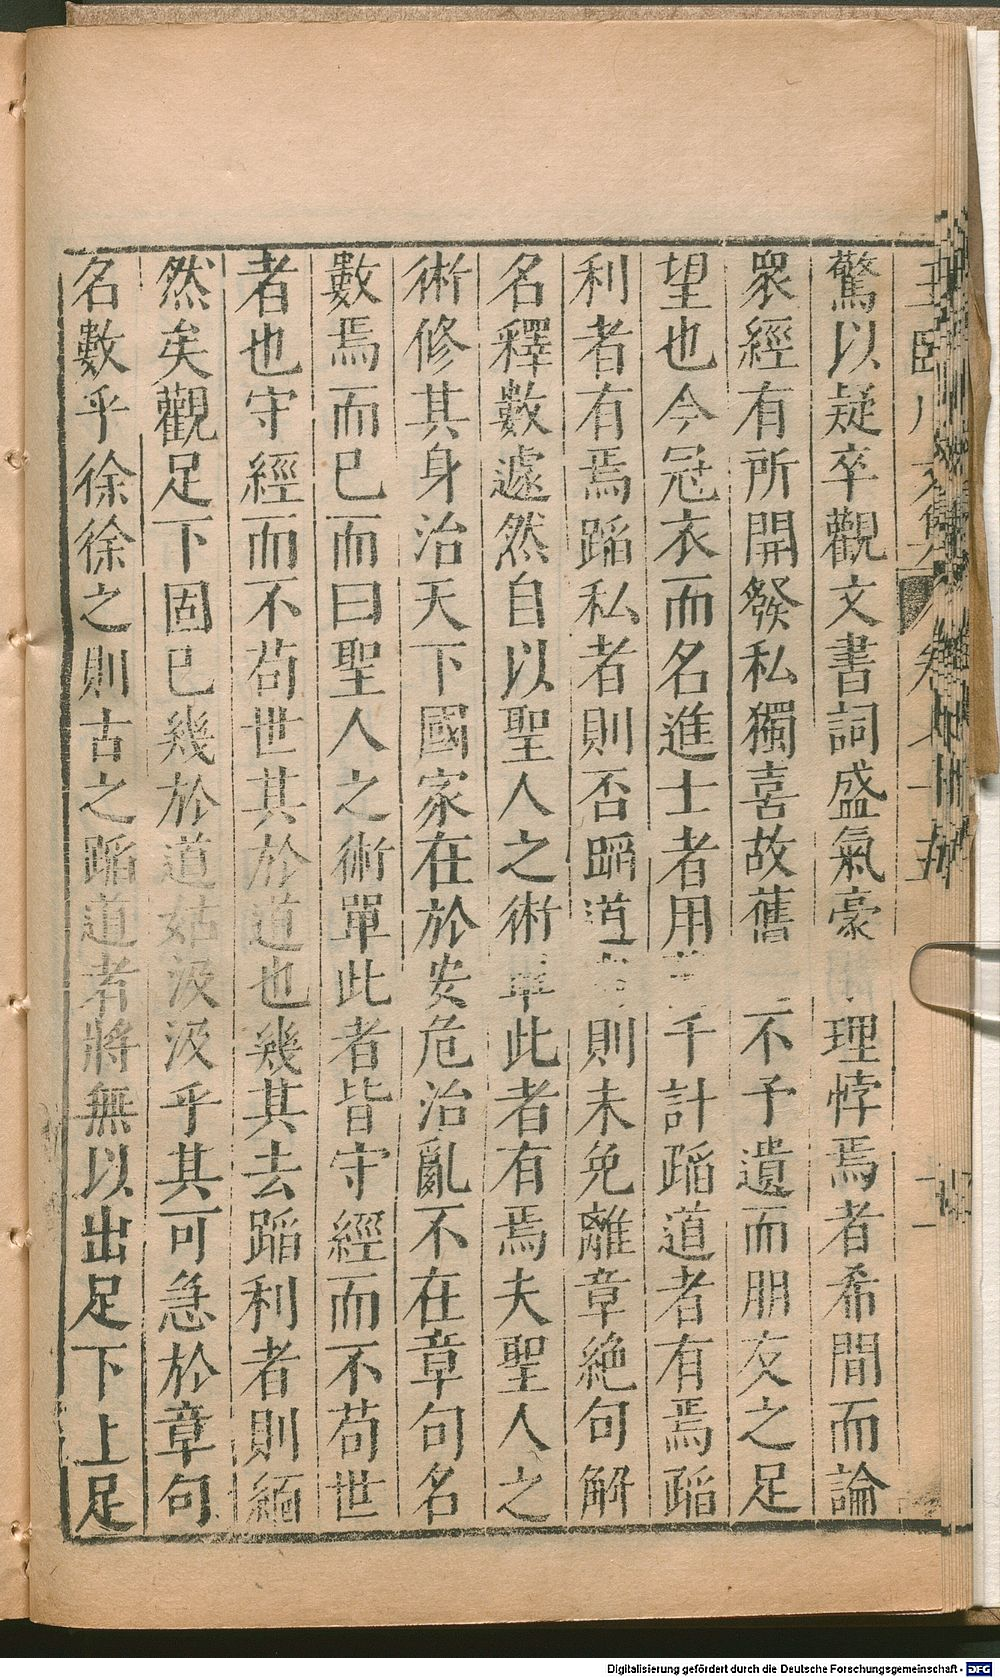 驚以疑卒觀文書詞盛氣豪理悖焉者希間而論
眾經有所開發私獨喜故舊不予遺而朋友之足
望也今冠衣而名進士者用千計蹈道者有焉蹈
利者有焉蹈私者則否蹈道則未免離章絶句解
名釋數遽然自以聖人之術單此者有焉夫聖人之
術修其身治天下國家在於安危治亂不在章句名
數焉而已而曰聖人之術單此者皆守經而不苟世
者也守經而不苟世其於道也幾其去蹈利者則緬
然矣觀足下固已幾於道姑汲汲乎其可急於章句
名數乎徐徐之則古之蹈道者將無以出足下上足
Digitalisierung gefördert durch die Deutsche Forschungsgemeinschaft - DFG